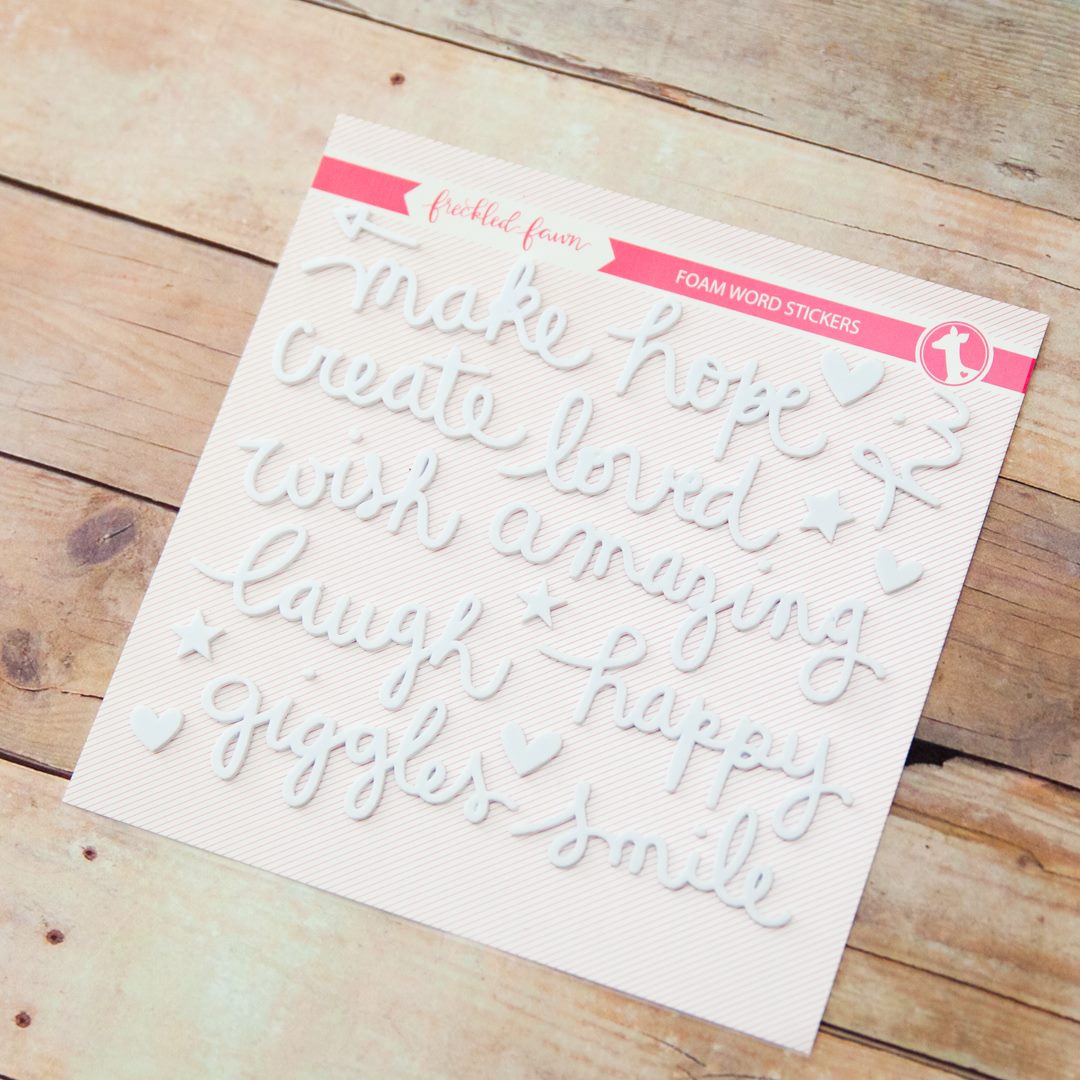 freckled fawn
FOAM WORD STICKERS
make hope
create loved
wish amazing
laugh happy
giggles smile